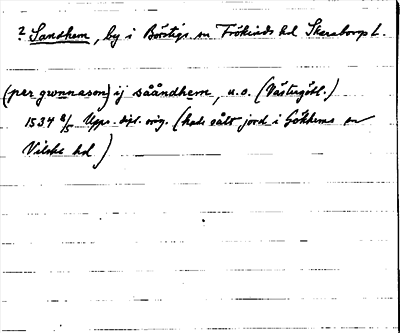 ? Sandhem, by i Börstigs sn Frökinds hd Skaraborgs l.
(per gwnnason) ij sååndhem, u.o. (Västergötl.)
1534 8/5 Upps. dipl. orig. (hade sålt jord i Gökhems sn
Vilske hd)